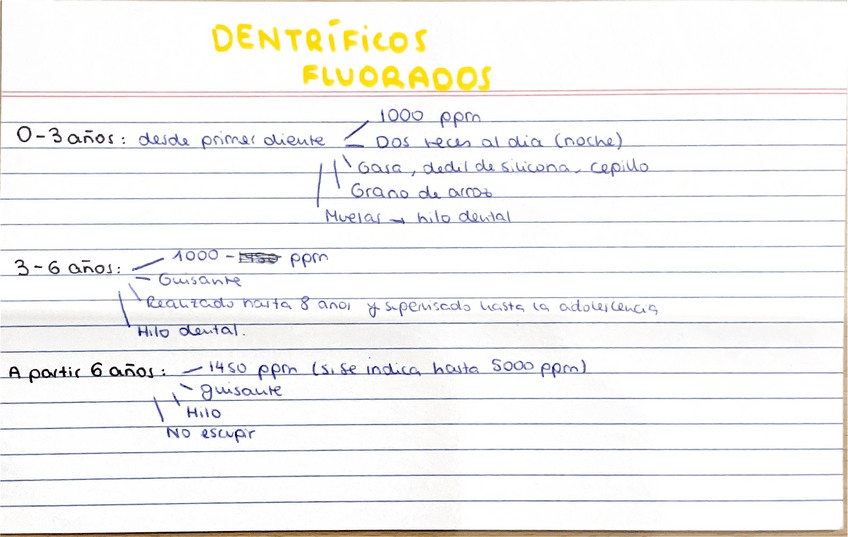 DENTRÍFICOS
FLUORADOS
1000 ppm
0-3 años: desde primer diente
Dos veces al dia (noche)
Gasa, dedil de silicona, cepillo
Grano de arroz
Muelas → hilo dental
1000 - ppm
3-6 años:
Guisante
Realizado hasta 8 años y supervisado hasta la adolescencia
Hilo dental.
A partir 6 años: 1450 ppm (si se indica hasta 5000 ppm)
guisante
Hilo
No escupir